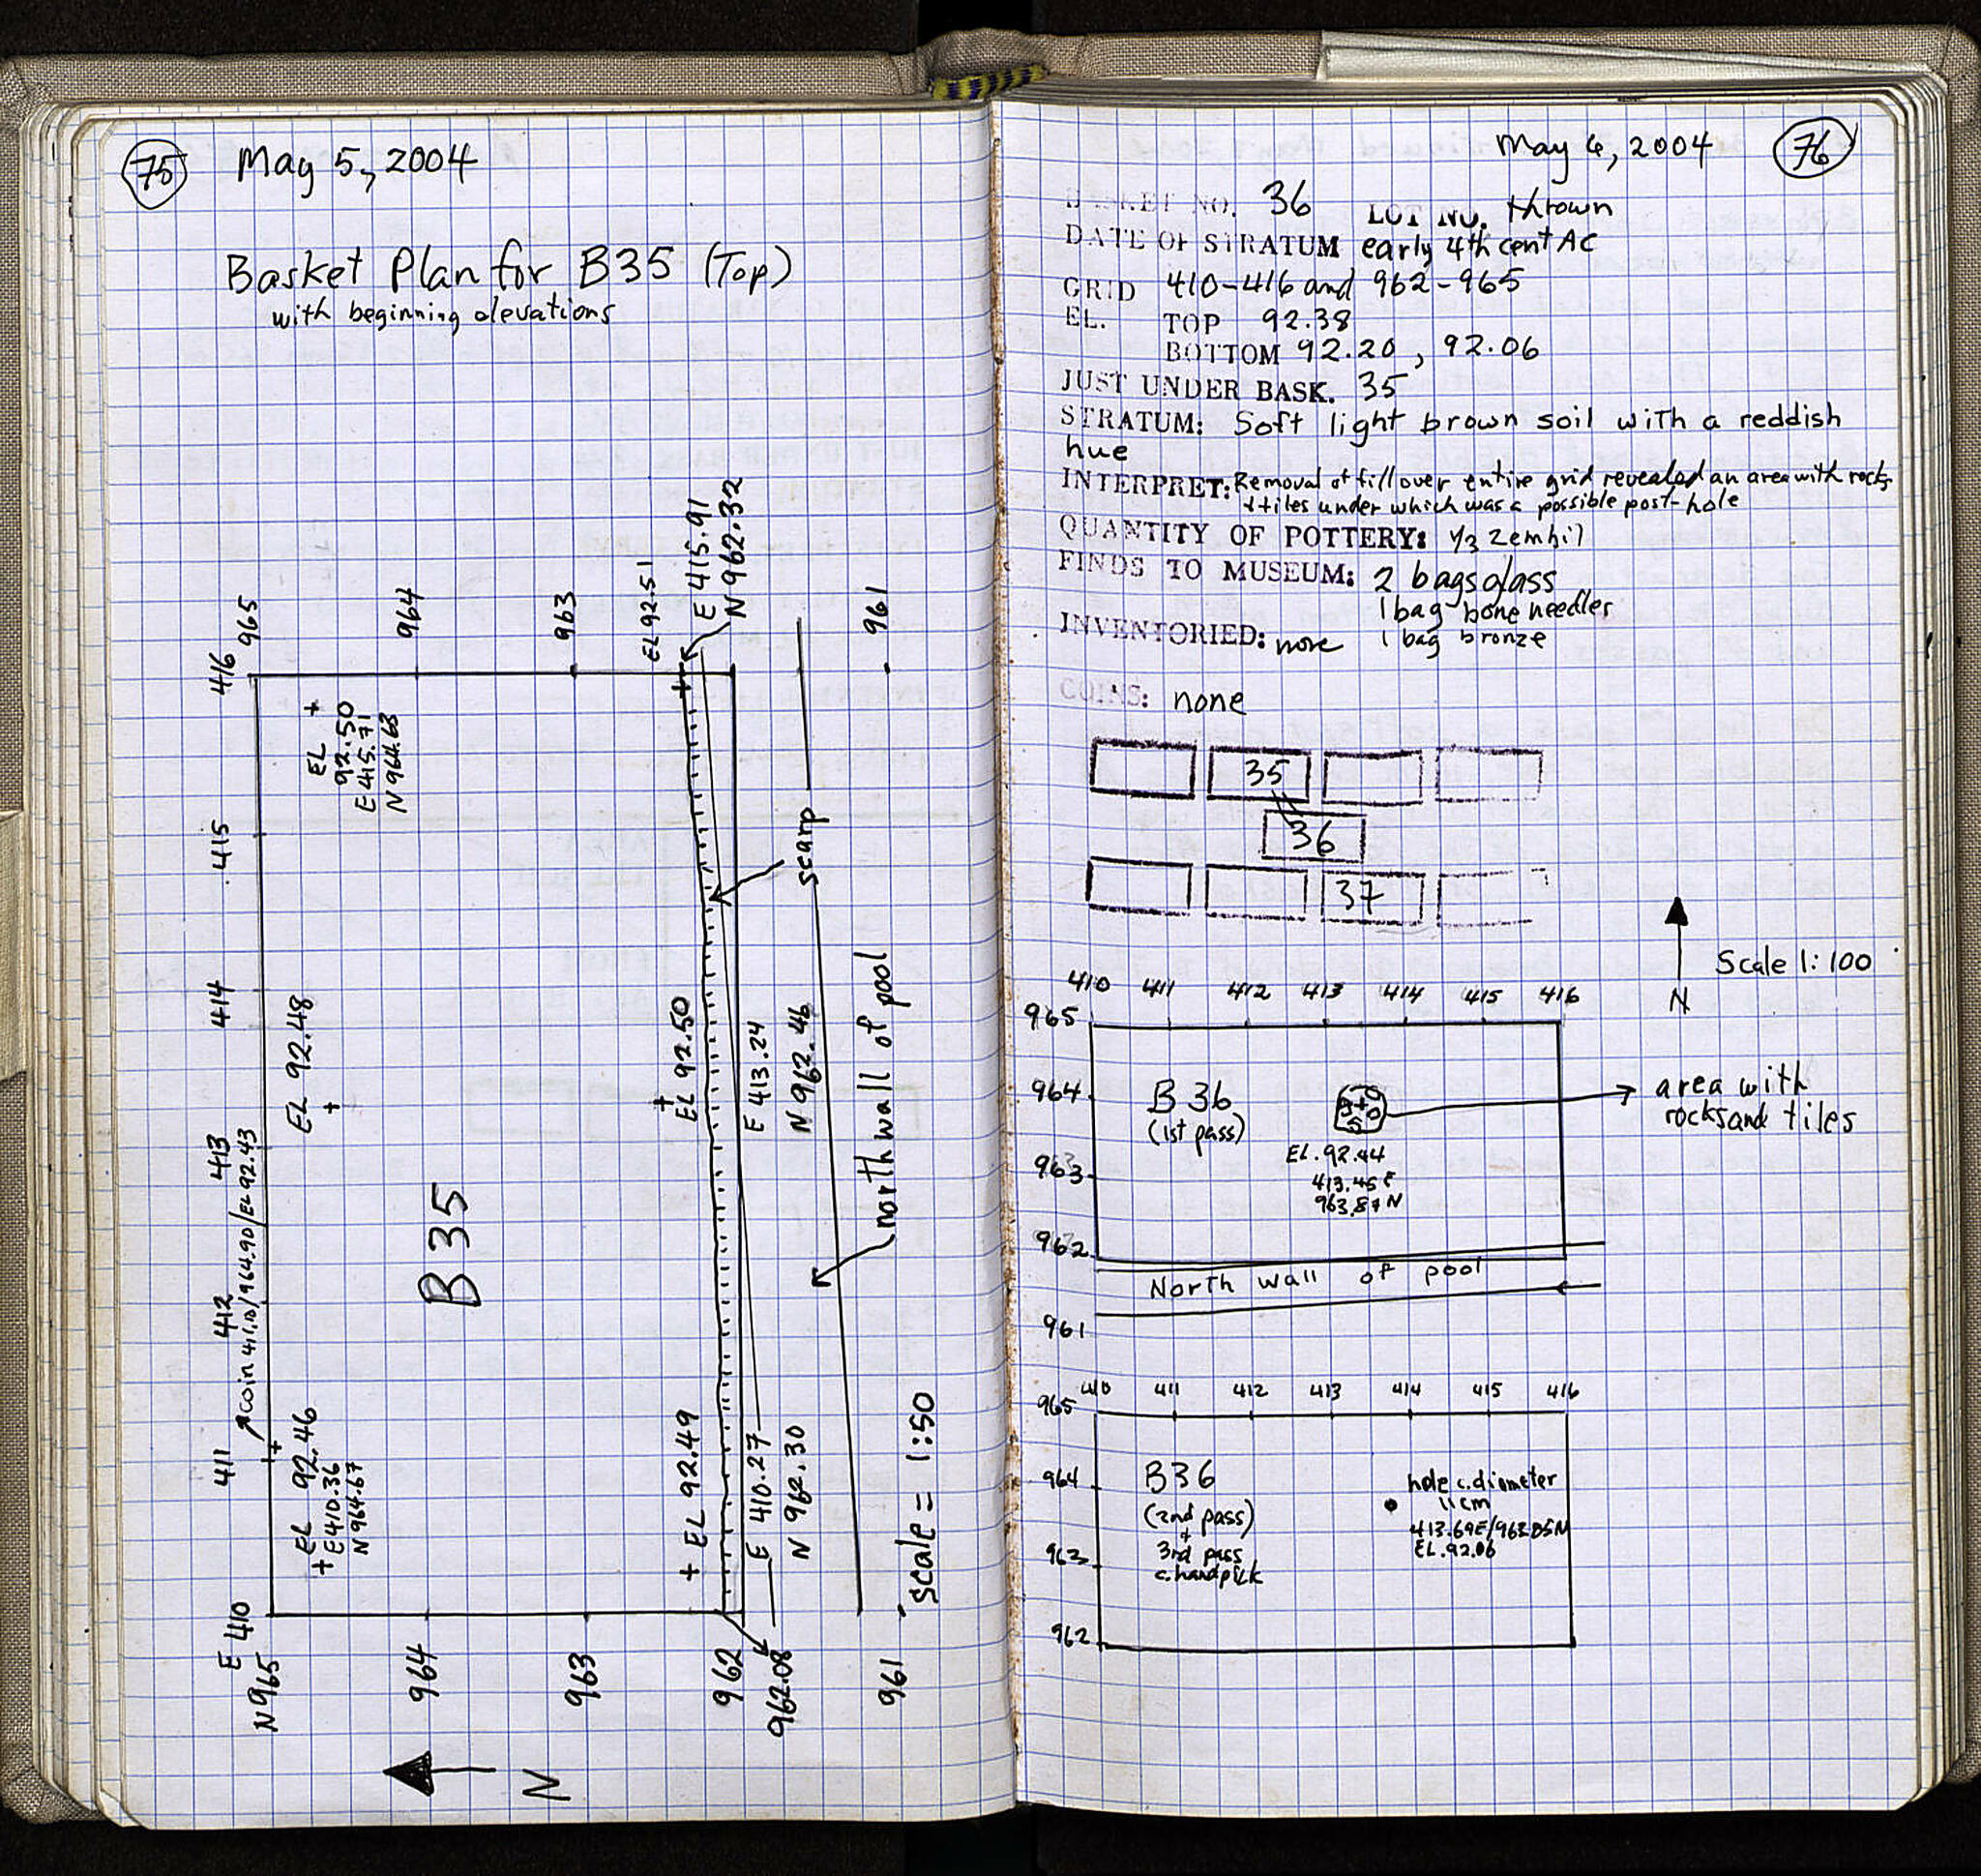 75 May 5, 2004
Basket Plan for B35 (Top)
with beginning elevations
965
964
963
EL 92.51
E 415.91
N 962.32
961
416
EL
92.50
E 415.71
N 964.63
415
scarp
414
EL 92.48
EL 92.50
E 413.24
N 962.46
north wall of pool
413
coin 411.10/964.90/EL 92.43
B35
412
411
EL 92.46
E 410.36
N 964.67
EL 92.49
E 410.27
N 962.30
scale = 1:50
E 410
N 965
964
963
962
962.08
961
N
May 6, 2004 76
BASKET NO. 36 LOT NO. thrown
DATE OF STRATUM early 4th cent AC
GRID 410-416 and 962-965
EL. TOP 92.38
BOTTOM 92.20, 92.06
JUST UNDER BASK. 35
STRATUM: Soft light brown soil with a reddish
hue
INTERPRET: Removal of fill over entire grid revealed an area with rocks
+ tiles under which was a possible post-hole
QUANTITY OF POTTERY: 1/3 zembil
FINDS TO MUSEUM: 2 bags glass
1 bag bone needles
INVENTORIED: none 1 bag bronze
COINS: none
35
36
37
Scale 1:100
N
410 411 412 413 414 415 416
965
964
963
962
961
B 36
(1st pass)
area with
rocks and tiles
EL. 92.44
413.45 E
963.87 N
North wall of pool
410 411 412 413 414 415 416
965
964
963
962
B36
(2nd pass)
+
3rd pass
c. handpick
hole c. diameter
11 cm
413.69E/963.85N
EL. 92.06